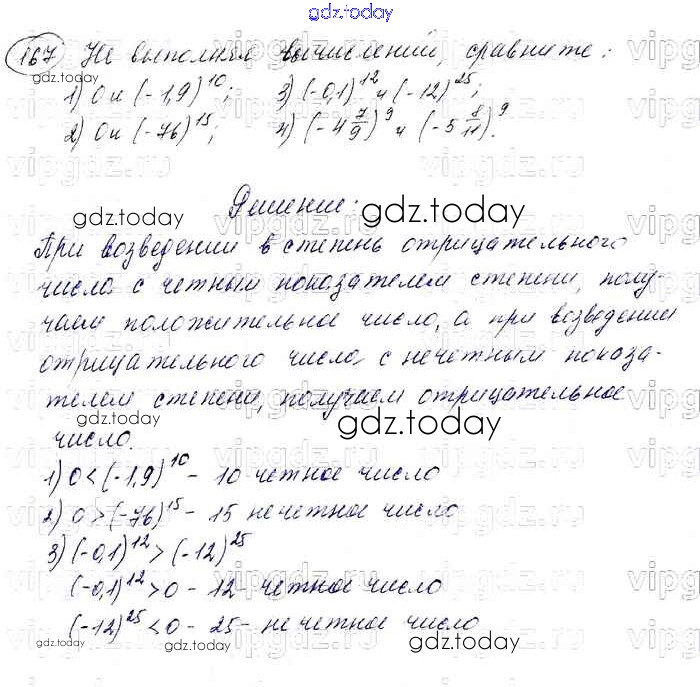 gdz.today
167 Не выполняя вычислений, сравните:
1) 0 и (-1,9)^10; 3) (-0,1)^12 и (-12)^25;
2) 0 и (-76)^15; 4) (-4 7/9)^9 и (-5 8/11)^9.
Решение:
При возведении в степень отрицательного
числа с четным показателем степени, полу-
чаем положительное число, а при возведении
отрицательного числа с нечетным показа-
телем степени, получаем отрицательное
число.
1) 0 < (-1,9)^10 - 10 четное число
2) 0 > (-76)^15 - 15 нечетное число
3) (-0,1)^12 > (-12)^25
(-0,1)^12 > 0 - 12 - четное число
(-12)^25 < 0 - 25 - нечетное число
gdz.today
gdz.today
gdz.today
gdz.today
gdz.today
gdz.today
gdz.today
gdz.today
gdz.today